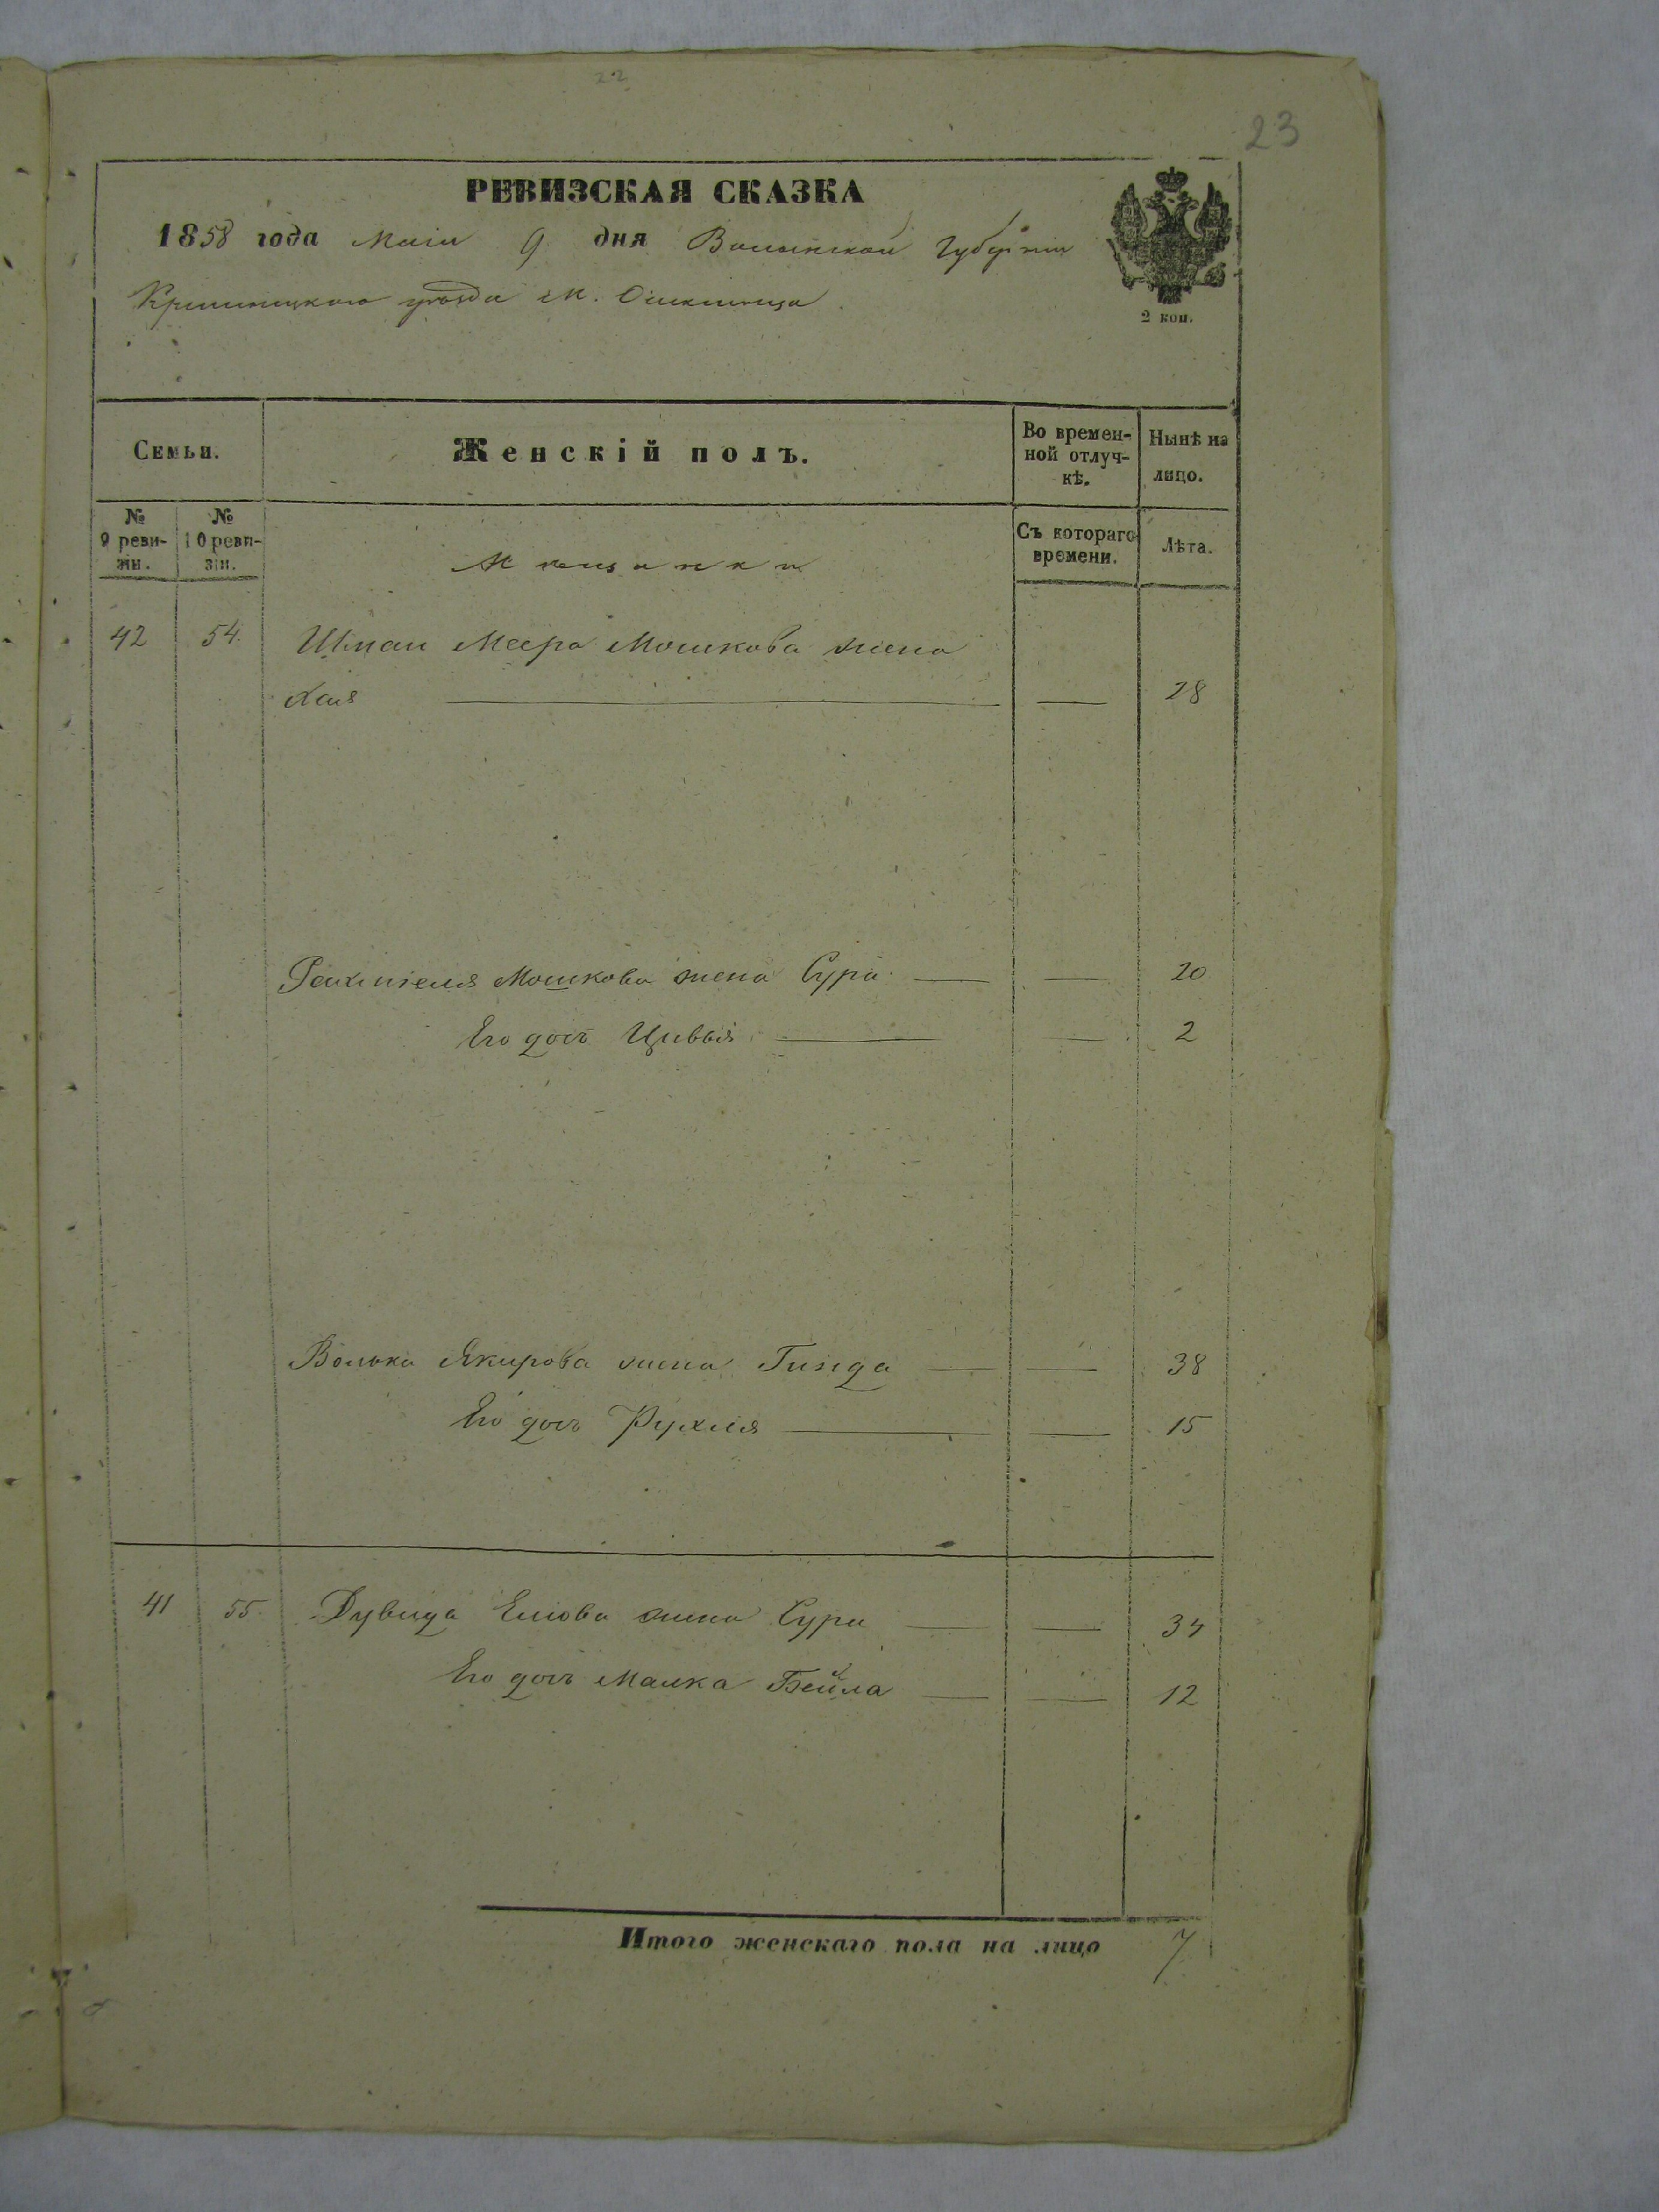 22
23
РЕВИЗСКАЯ СКАЗКА
1858 года Маія 9 дня Волынской Губерніи
Кременецкого уѣзда М.
2 коп.
Семьи.
Женскій полъ.
Во времен-
ной отлуч-
кѣ.
Нынѣ на
лицо.
№
9 реви-
зіи.
№
10 реви-
зіи.
Мѣщанки
Съ котораго
времени.
Лѣта.
42 54. Меера Мошкова жена
Хая — — 28
Мошкова жена Сура — — 20
Его дочь Цивья — — 2
Волька Якирова жена Гинда — — 38
Его дочь Рухля — — 15
41 55. Дувида жена Сура — — 34
Его дочь Малка Бейла — — 12
Итого женскаго пола на лицо 7